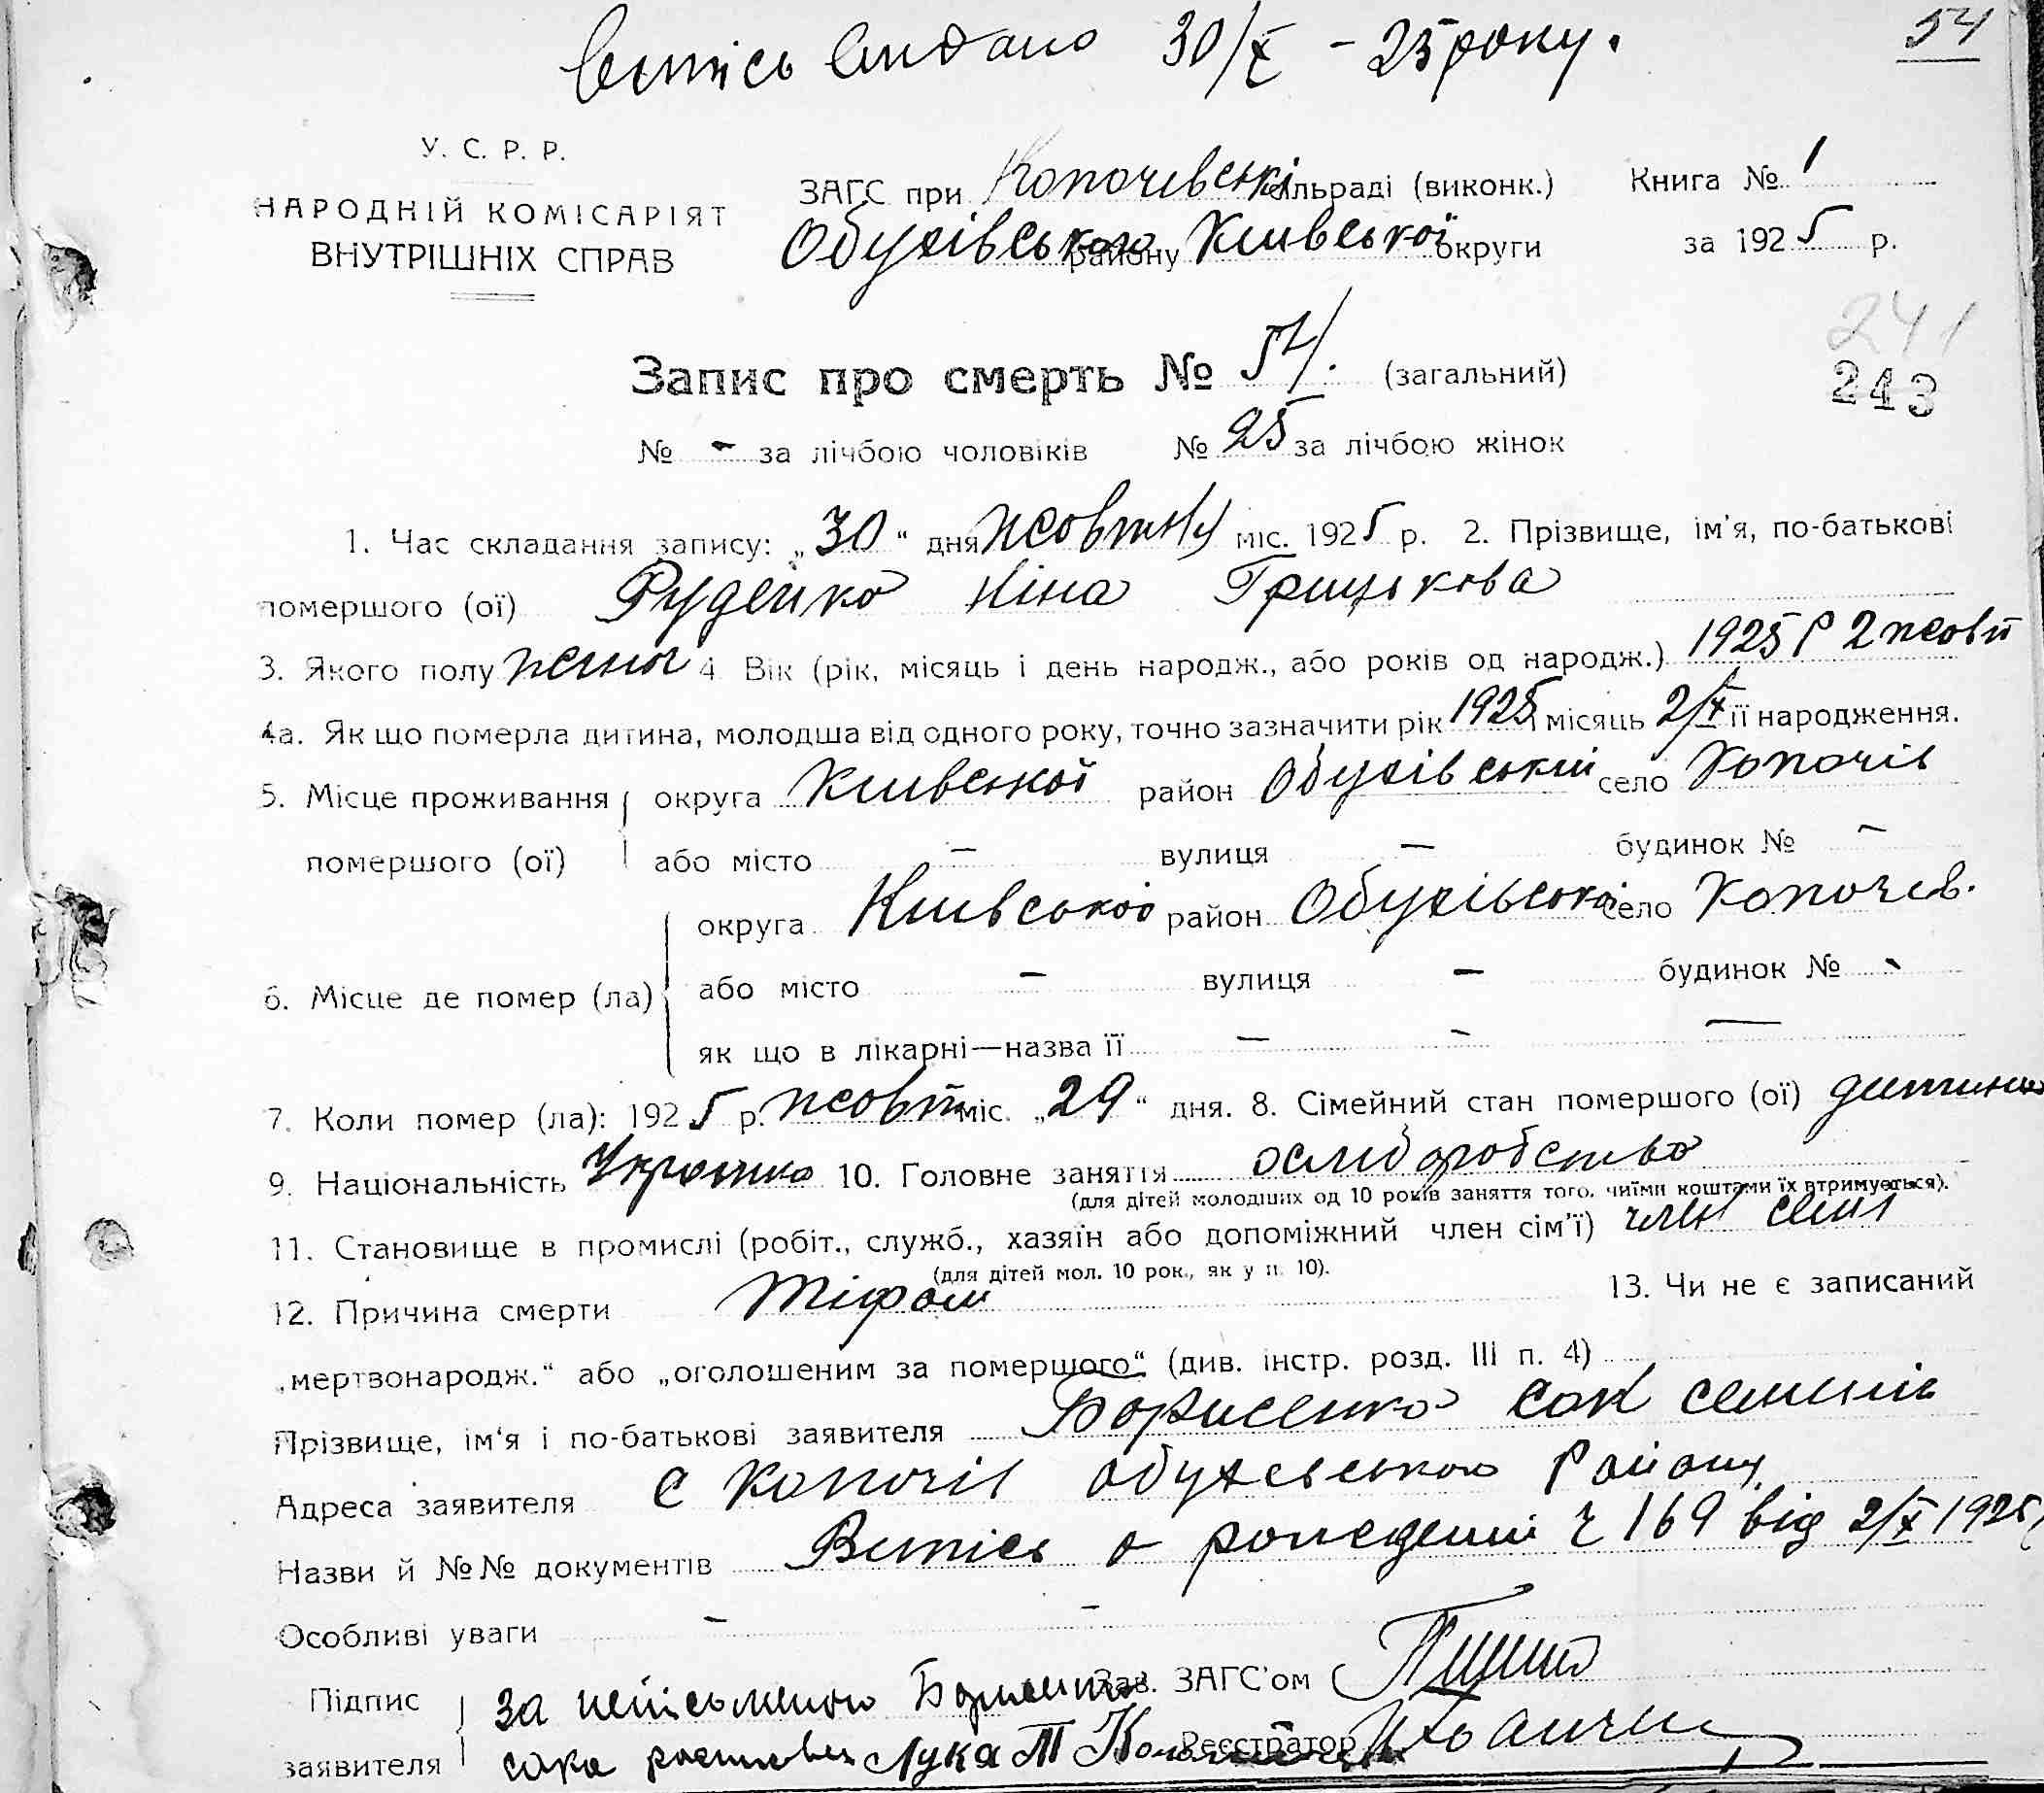 Витпісь видано 30/X – 25 року.
54
У. С. Р. Р.
НАРОДНІЙ КОМІСАРІЯТ
ВНУТРІШНІХ СПРАВ
ЗАГС при Копочивські сільраді (виконк.) Книга № 1
Обухівського району Київської округи за 1925 р.
241
243
Запис про смерть № 54. (загальний)
№ - за лічбою чоловіків № 25 за лічбою жінок
1. Час складання запису: „30“ дня жовтня міс. 1925 р. 2. Прізвище, ім'я, по-батькові
помершого (ої) Руденко Ніна Грицькова
3. Якого полу 4 Вік (рік, місяць і день народж., або років од народж.) 1925 р 2 жовт
4а. Як що померла дитина, молодша від одного року, точно зазначити рік 1925 місяць 2/X її народження.
5. Місце проживання округа Київської район Обухівський село Копочів
помершого (ої) або місто – вулиця – будинок № –
округа Київської район Обухівський село Копочев.
6. Місце де помер (ла) або місто – вулиця – будинок № -
як що в лікарні—назва її – – –
7. Коли помер (ла): 1925 р. жовт міс. „29“ дня. 8. Сімейний стан помершого (ої) дитина
9. Національність 10. Головне заняття
(для дітей молодших од 10 років заняття того, чиїми коштами їх втримується).
11. Становище в промислі (робіт., служб., хазяїн або допоміжний член сім'ї) член семі
(для дітей мол. 10 рок., як у п. 10).
12. Причина смерти Тіфом 13. Чи не є записаний
„мертвонародж.“ або „оголошеним за помершого“ (див. інстр. розд. III п. 4)
Прізвище, ім'я і по-батькові заявителя Борисенко Сак Семенів
Адреса заявителя с Копочів Обухевського Району
Назви й №№ документів Витпісь о рожедении ч 169 від 2/X 1925
Особливі уваги – –
Підпис за непісьменого Борисенка Зав. ЗАГС'ом
заявителя сака росписавсь Лука Т Реєстратор